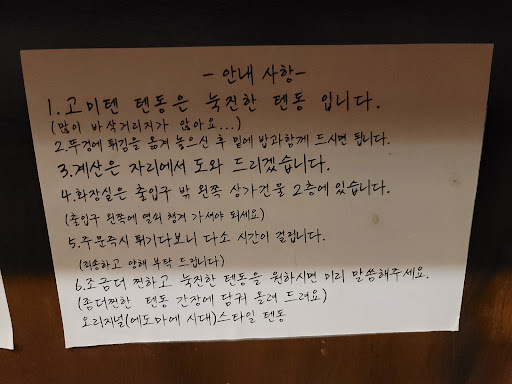 - 안내 사항-
1. 고미텐 텐동은 눅진한 텐동 입니다.
(많이 바삭거리지가 않아요...)
2. 뚜껑에 튀김을 옮겨 놓으신 후 밑에 밥과함께 드시면 됩니다.
3. 계산은 자리에서 도와 드리겠습니다.
4. 화장실은 출입구 밖 왼쪽 상가건물 2층에 있습니다.
(출입구 왼쪽에 열쇠 챙겨 가셔야 되세요)
5. 주문즉시 튀기다보니 다소 시간이 걸립니다.
(죄송하고 양해 부탁 드립니다)
6. 조금더 찐하고 눅진한 텐동을 원하시면 미리 말씀해주세요.
(좀더찐한 텐동 간장에 담궈 올려 드려요)
오리지널(에도마에 시대)스타일 텐동